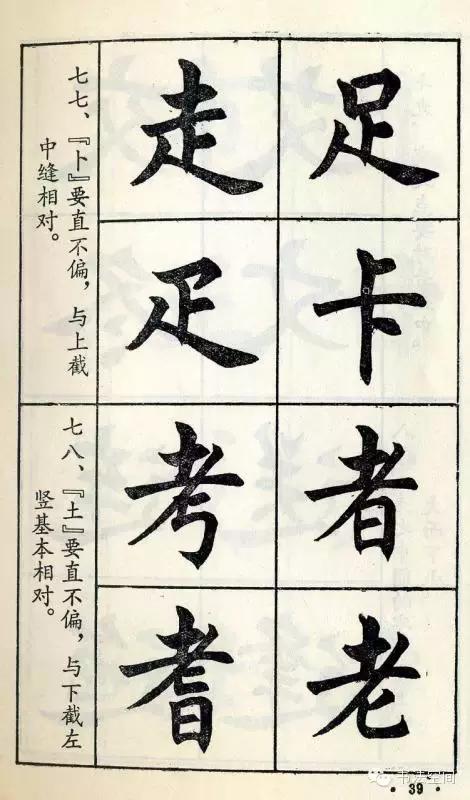 足卡
走疋
七七、『卜』要直不偏，与上截
中缝相对。
者老
考耆
七八、『土』要直不偏，与下截左
竖基本相对。
·39·
书法空间